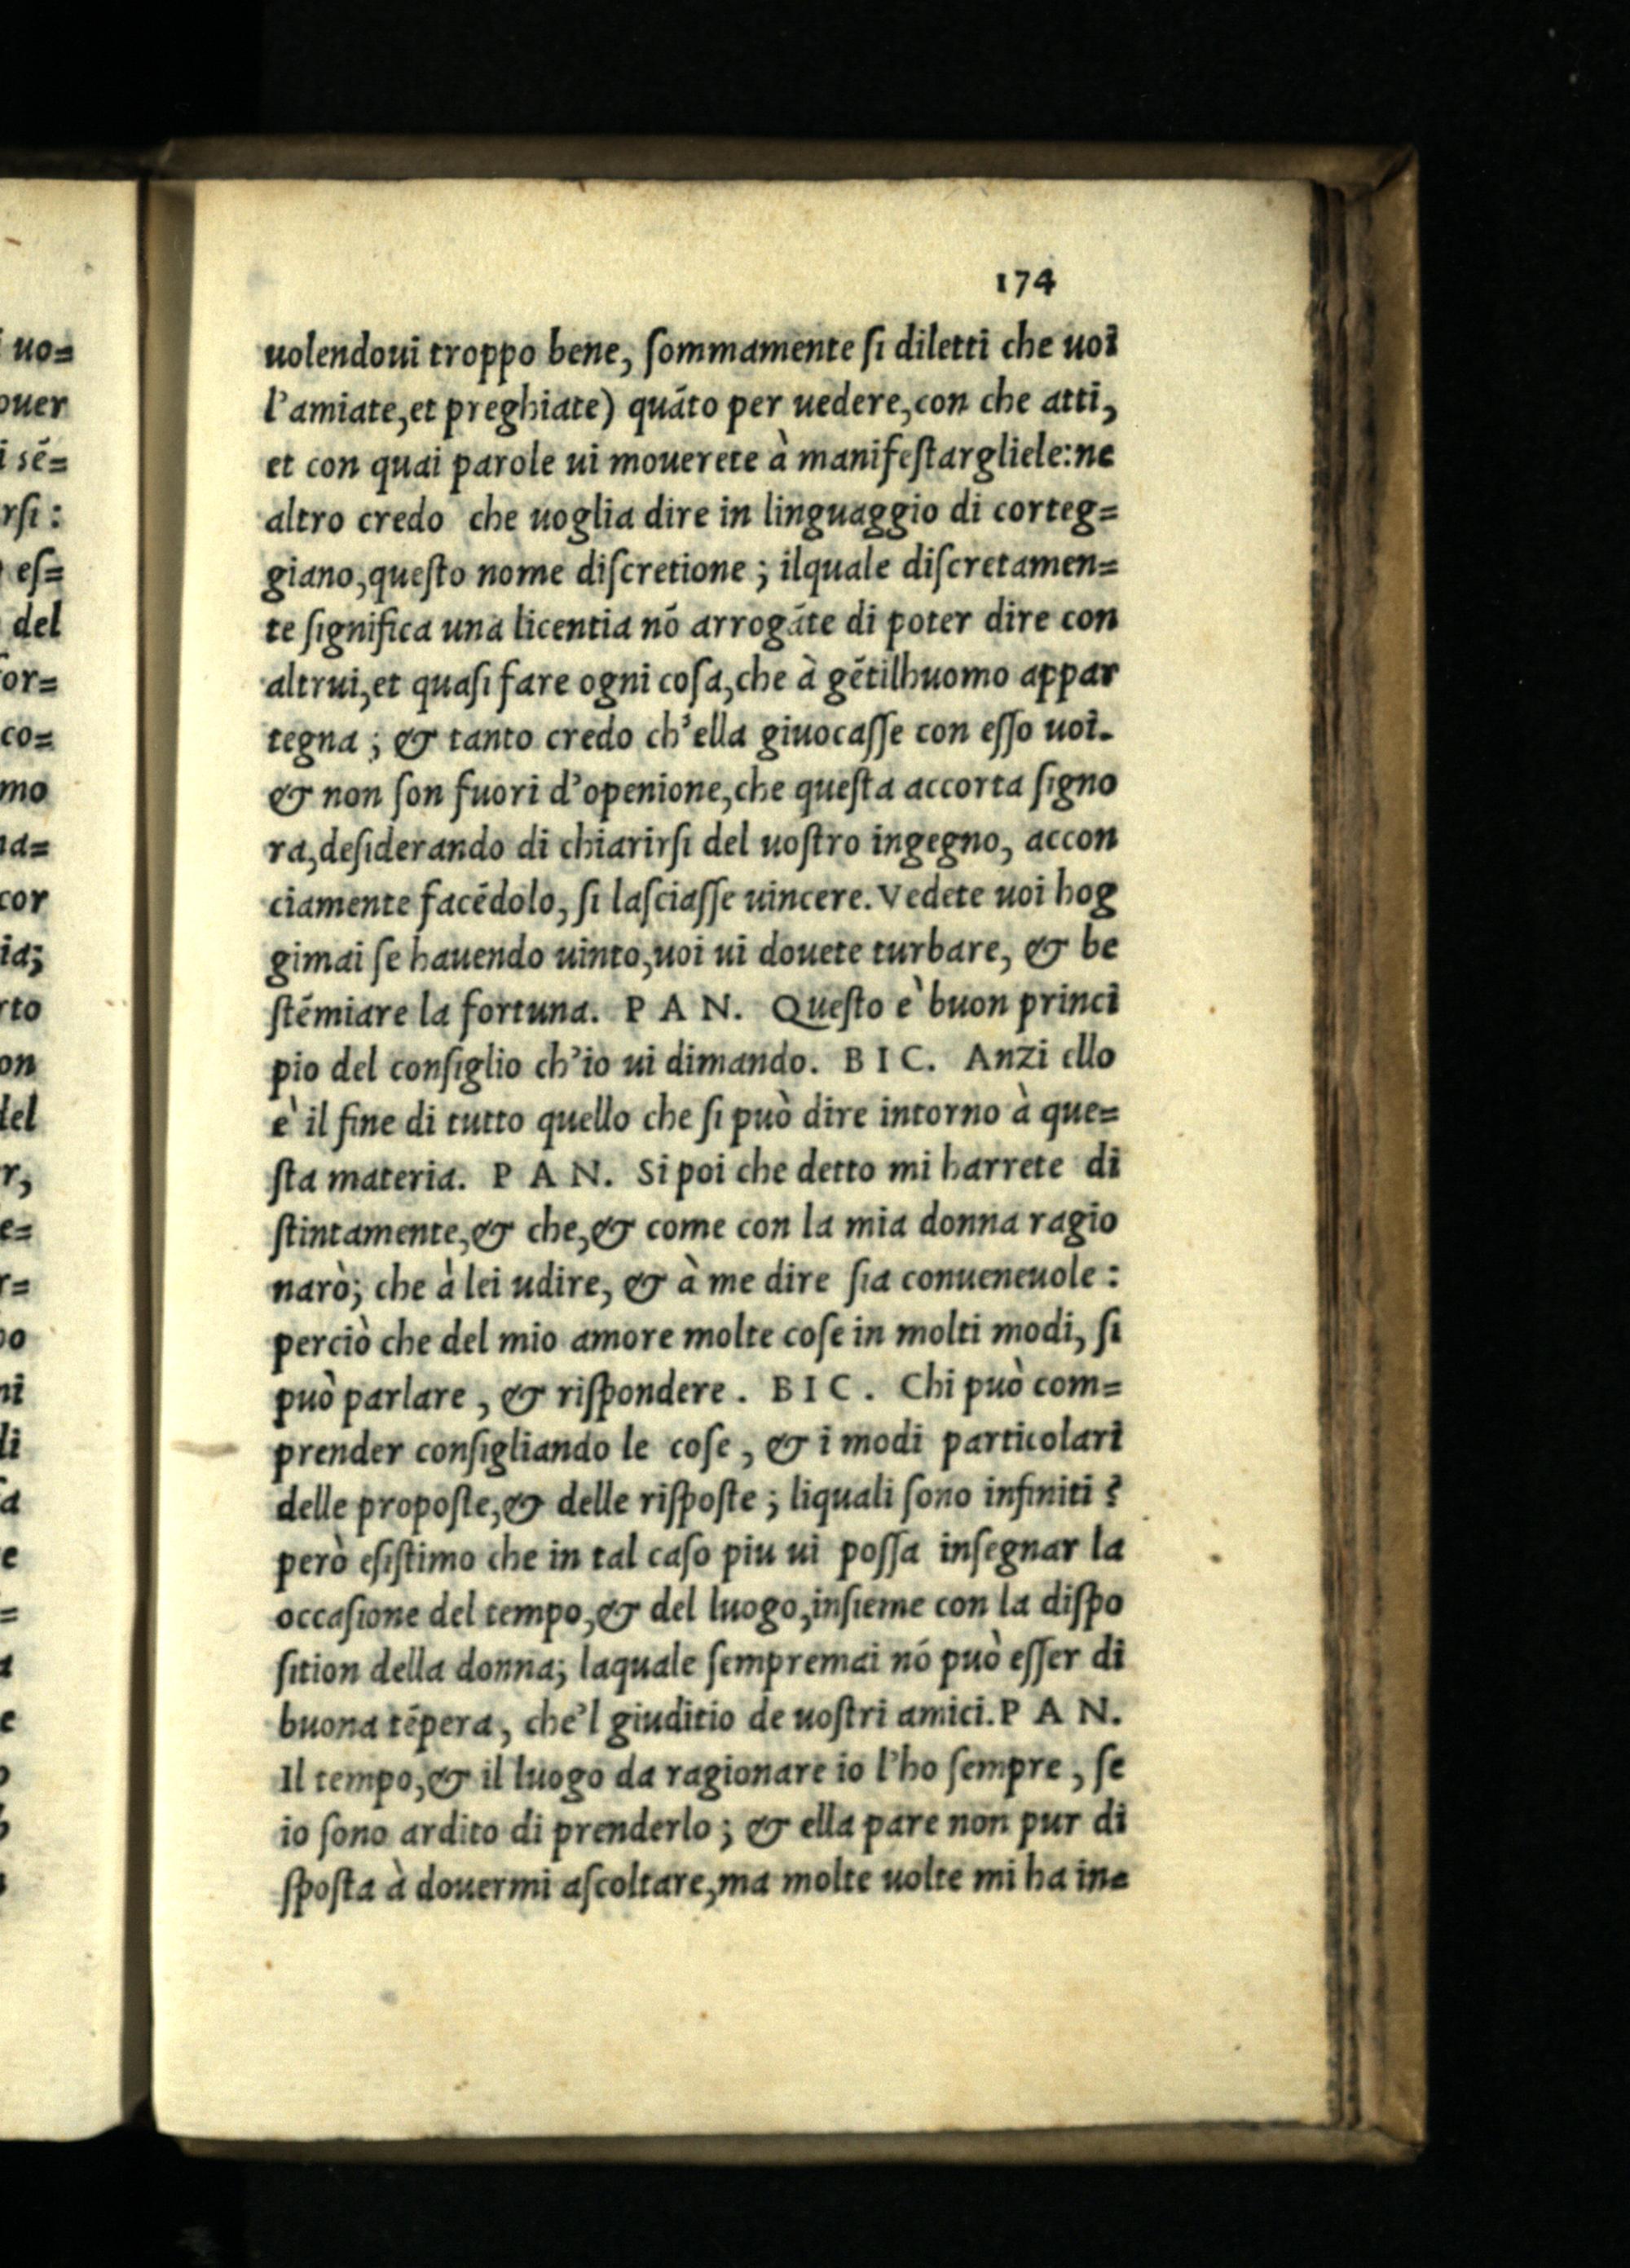 174
uolendoui troppo bene, ſommamente ſi diletti che uoi
l'amiate,et preghiate) quāto per uedere,con che atti,
et con quai parole ui mouerete à manifeſtargliele:ne
altro credo che uoglia dire in linguaggio di corteg=
giano,queſto nome diſcretione; ilquale diſcretamen=
te ſignifica una licentia nō arrogāte di poter dire con
altrui,et quaſi fare ogni coſa,che à gētilhuomo appar
tegna; & tanto credo ch'ella giuocaſſe con eſſo uoi.
& non ſon fuori d'openione,che queſta accorta ſigno
ra,deſiderando di chiarirſi del uoſtro ingegno, accon
ciamente facēdolo, ſi laſciaſſe uincere. Vedete uoi hog
gimai ſe hauendo uinto,uoi ui douete turbare, & be
ſtēmiare la fortuna. P A N. Queſto è buon princi
pio del conſiglio ch'io ui dimando. B I C. Anzi ello
è il fine di tutto quello che ſi può dire intorno à que=
ſta materia. P A N. Si poi che detto mi harrete di
ſtintamente,& che,& come con la mia donna ragio
narò; che à lei udire, & à me dire ſia conueneuole:
perciò che del mio amore molte coſe in molti modi, ſi
può parlare, & riſpondere. B I C. Chi può com=
prender conſigliando le coſe, & i modi particolari
delle propoſte,& delle riſpoſte; liquali ſono infiniti?
però eſiſtimo che in tal caſo piu ui poſſa inſegnar la
occaſione del tempo,& del luogo,inſieme con la diſpo
ſition della donna; laquale ſempremai nō può eſſer di
buona tēpera, che'l giuditio de uoſtri amici. P A N.
Il tempo,& il luogo da ragionare io l'ho ſempre, ſe
io ſono ardito di prenderlo; & ella pare non pur di
ſpoſta à douermi aſcoltare,ma molte uolte mi ha in=